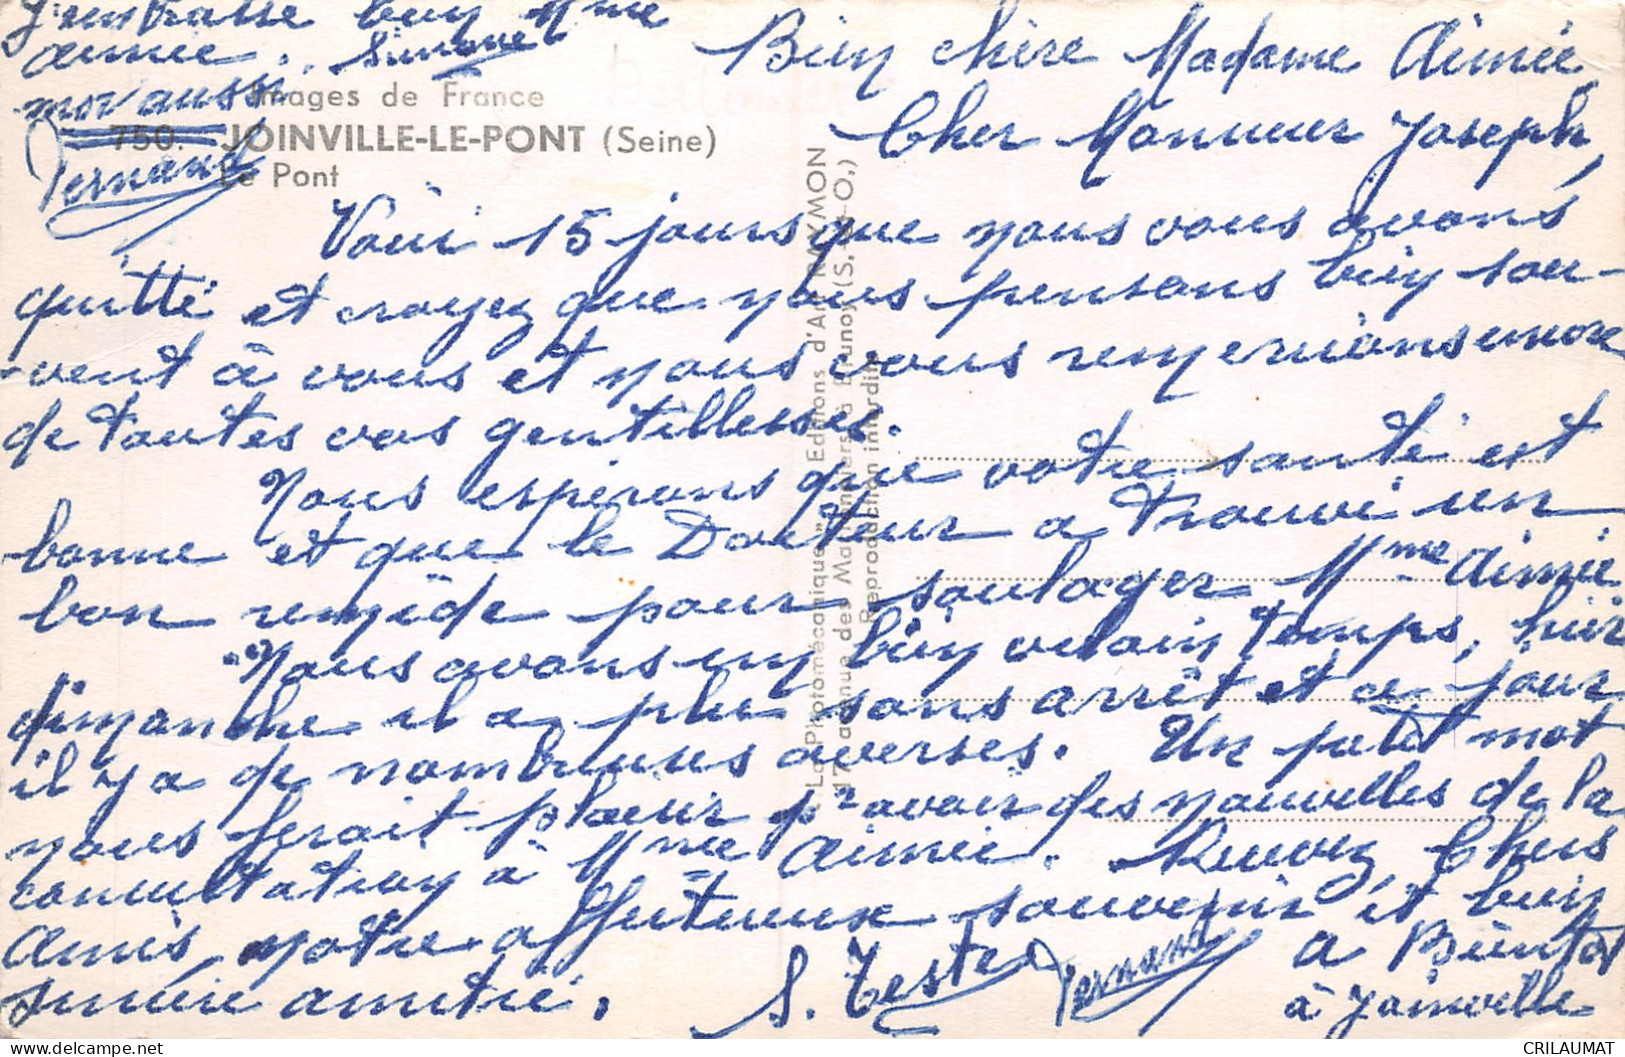 J'embrasse bien Mme
Aimée. Simone
moi aussi
Fernand
Images de France
750. - JOINVILLE-LE-PONT (Seine)
Le Pont
Bien chère Madame Aimée,
Cher Monsieur Joseph,
Voici 15 jours que nous vous avons
quitté et croyez que nous pensons bien sou-
-vent à vous et nous vous remercions encore
de toutes vos gentillesses.
Nous espérons que votre santé est
bonne et que le Docteur a trouvé un
bon remède pour soulager Mme Aimée.
Nous avons un bien vilain temps, hier
dimanche il a plu sans arrêt et ce jour
il y a de nombreuses averses. Un petit mot
nous ferait plaisir pr avoir des nouvelles de la
consultation à Mme Aimée. Recevez, Chers
Amis, notre affectueux souvenir et bien
sincère amitié.
S. Teste Fernand
A Bientôt
à Joinville
"La Photomécanique" Editions d'Art RAYMON
17, avenue des Marronniers à Brunoy (S.-&-O.)
Reproduction interdite
CRILAUMAT